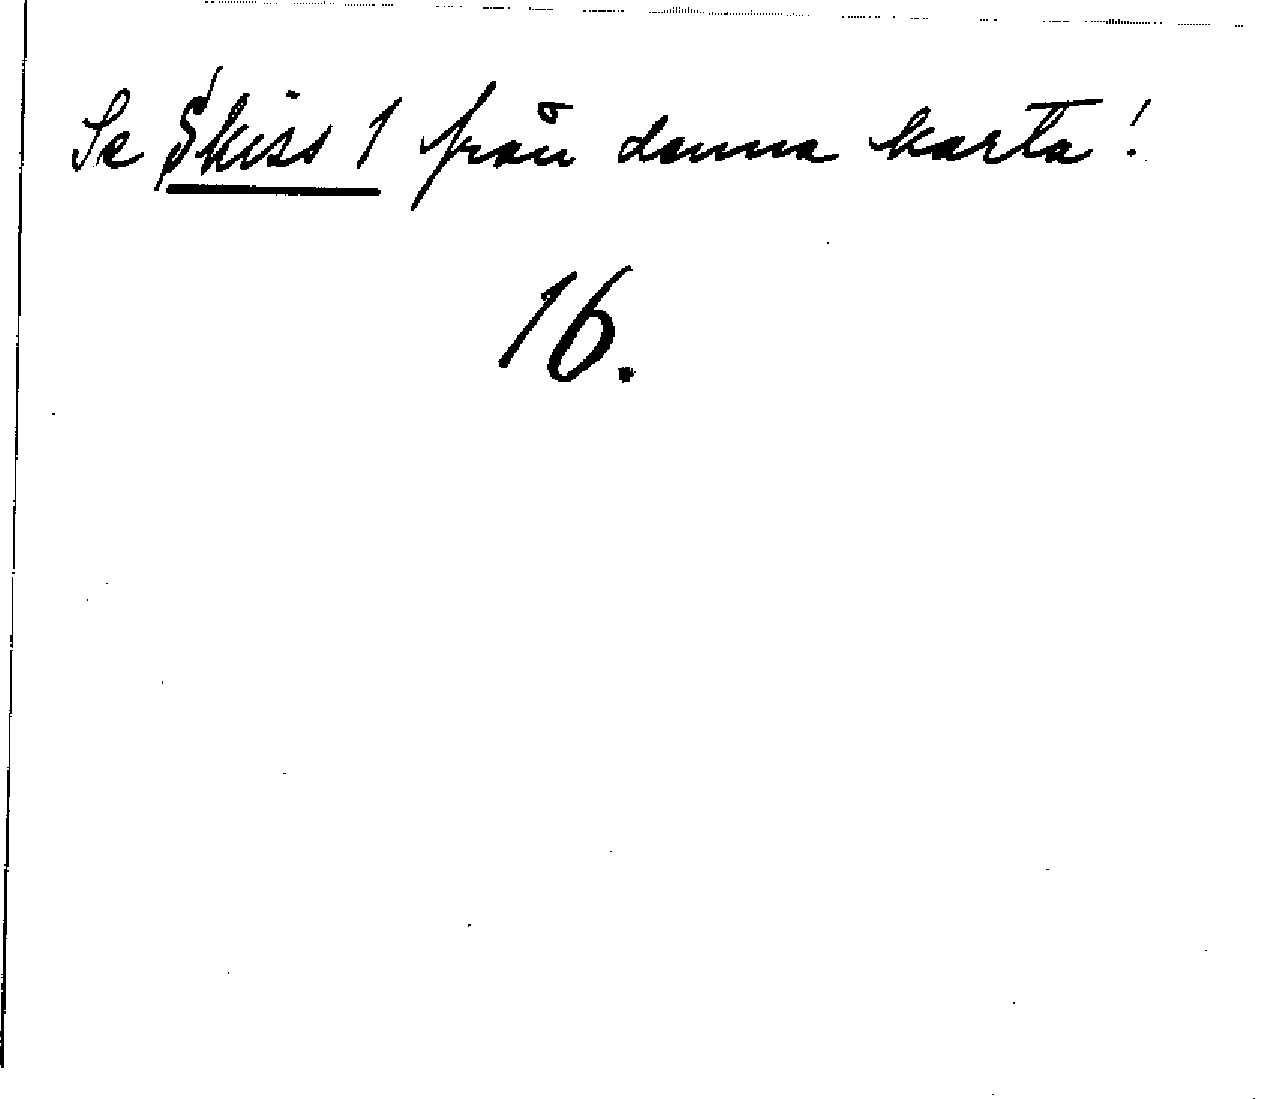 Se Skiss 1 från denna karta!
16.